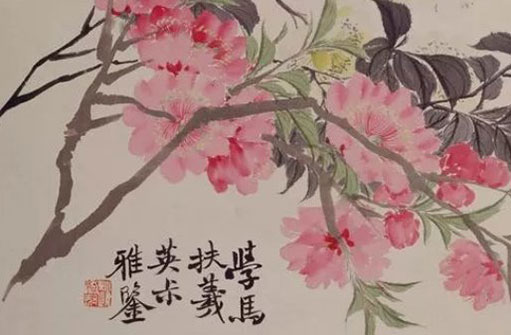 學馬
扶羲
英
雅鑒